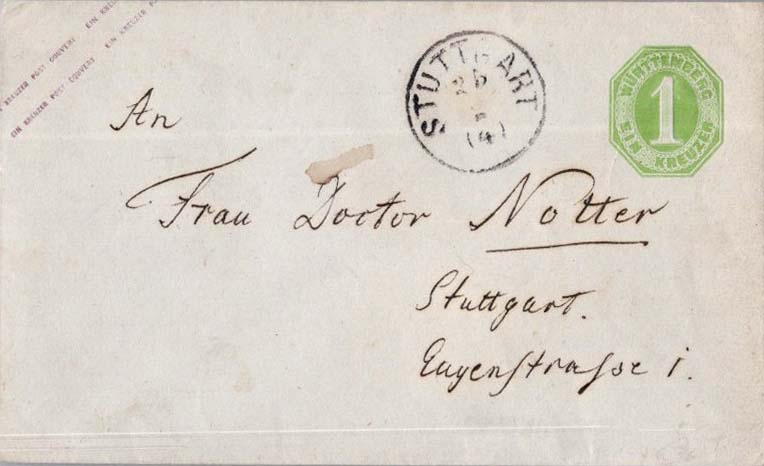 EIN KREUZER POST COUVERT EIN KREUZER
EIN KREUZER POST COUVERT EIN KREUZER
STUTTGART
(4)
WÜRTTEMBERG
1
EIN KREUZER
An
Frau Doctor Notter
Stuttgart.
Eugenstraſse 1.